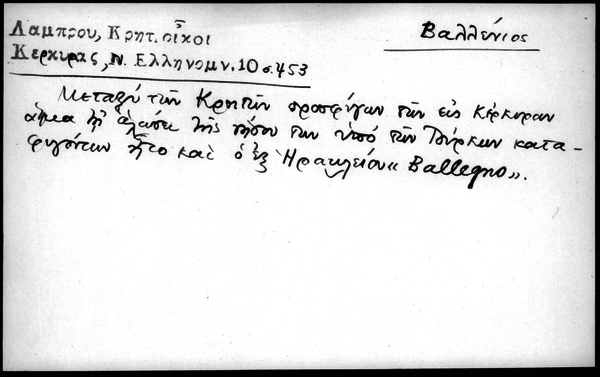 Λαμπρου, Κρητ. οἶκοι
Κερκυρας, Ν. Ελληνομν. 10 σ. 453
Βαλλένιος
Μεταξύ τῶν Κρητῶν προσφύγων τῶν εἰς Κέρκυραν
ἅμα τῇ ἁλώσει τῆς νήσου των ὑπό τῶν Τούρκων κατα-
φυγόντων ἦτο καί ὁ ἐξ Ἡρακλείου «Ballegno».